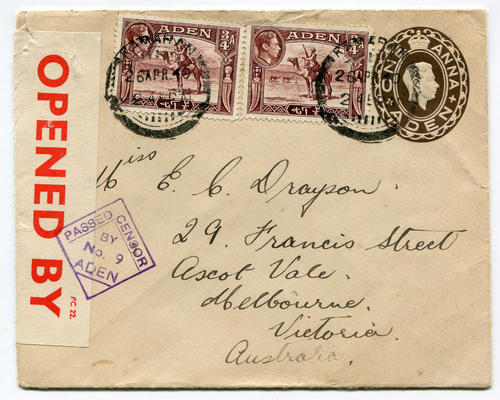 OPENED BY
P.C. 22.
ADEN
¾
ADEN
¾
KAMARAN
26 APR 40
KAMARAN
26 APR
ONE ANNA
ADEN
PASSED CENSOR
BY
No. 9
ADEN
Miss E. C. Drayson.
29. Francis Street
Ascot Vale.
Melbourne.
Victoria.
Australia.